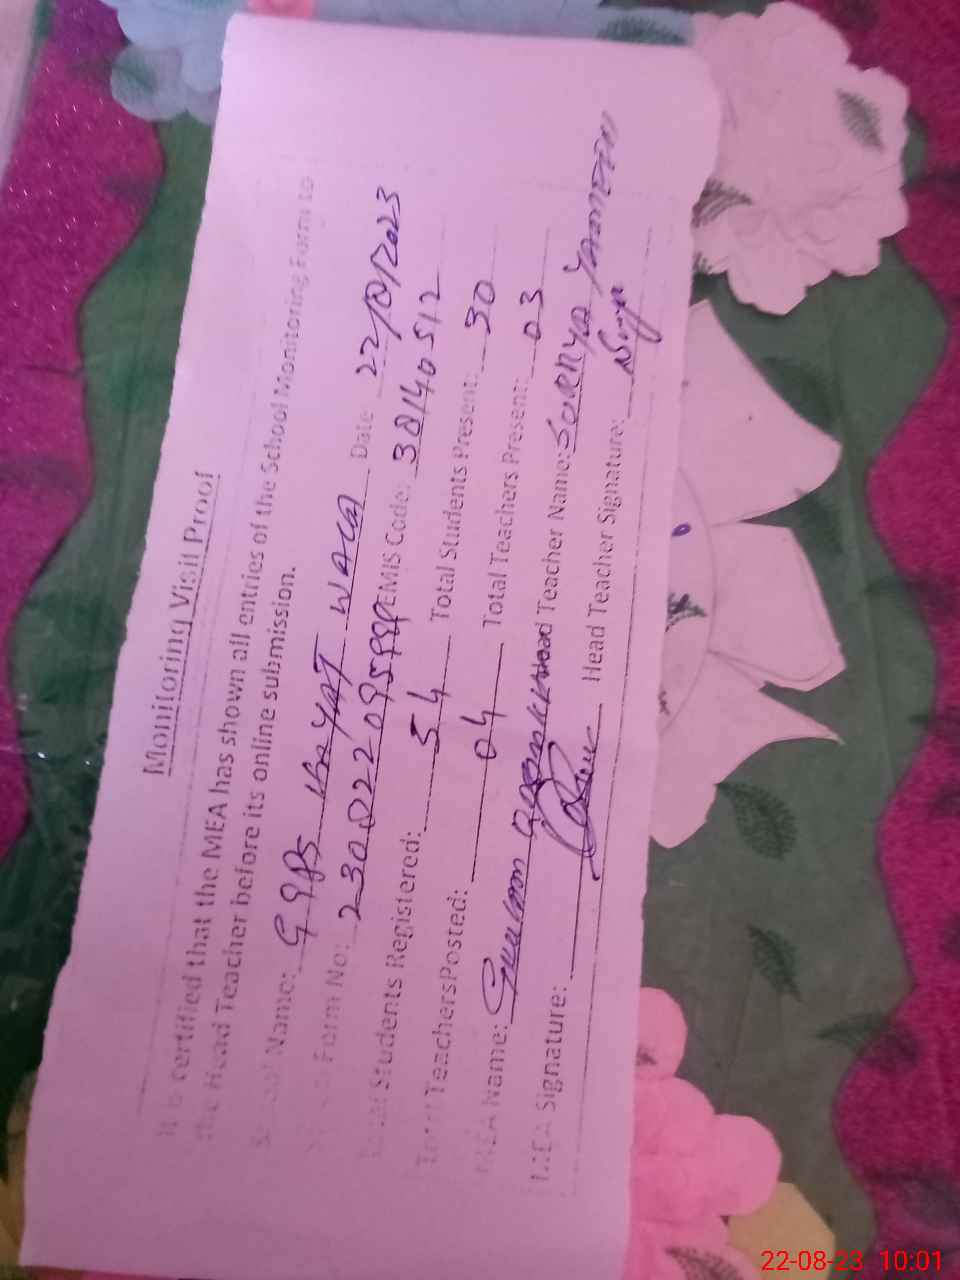 Monitoring Visit Proof
It is certified that the MEA has shown all entries of the School Monitoring Form to
the Head Teacher before its online submission.
School Name: GGPS WACA Date: 22/8/2023
Form No: EMIS Code: 38140512
Total Students Registered: 54 Total Students Present: 30
Total Teachers Posted: 04 Total Teachers Present: 03
MEA Name: Head Teacher Name:
MEA Signature: Head Teacher Signature:
22-08-23 10:01